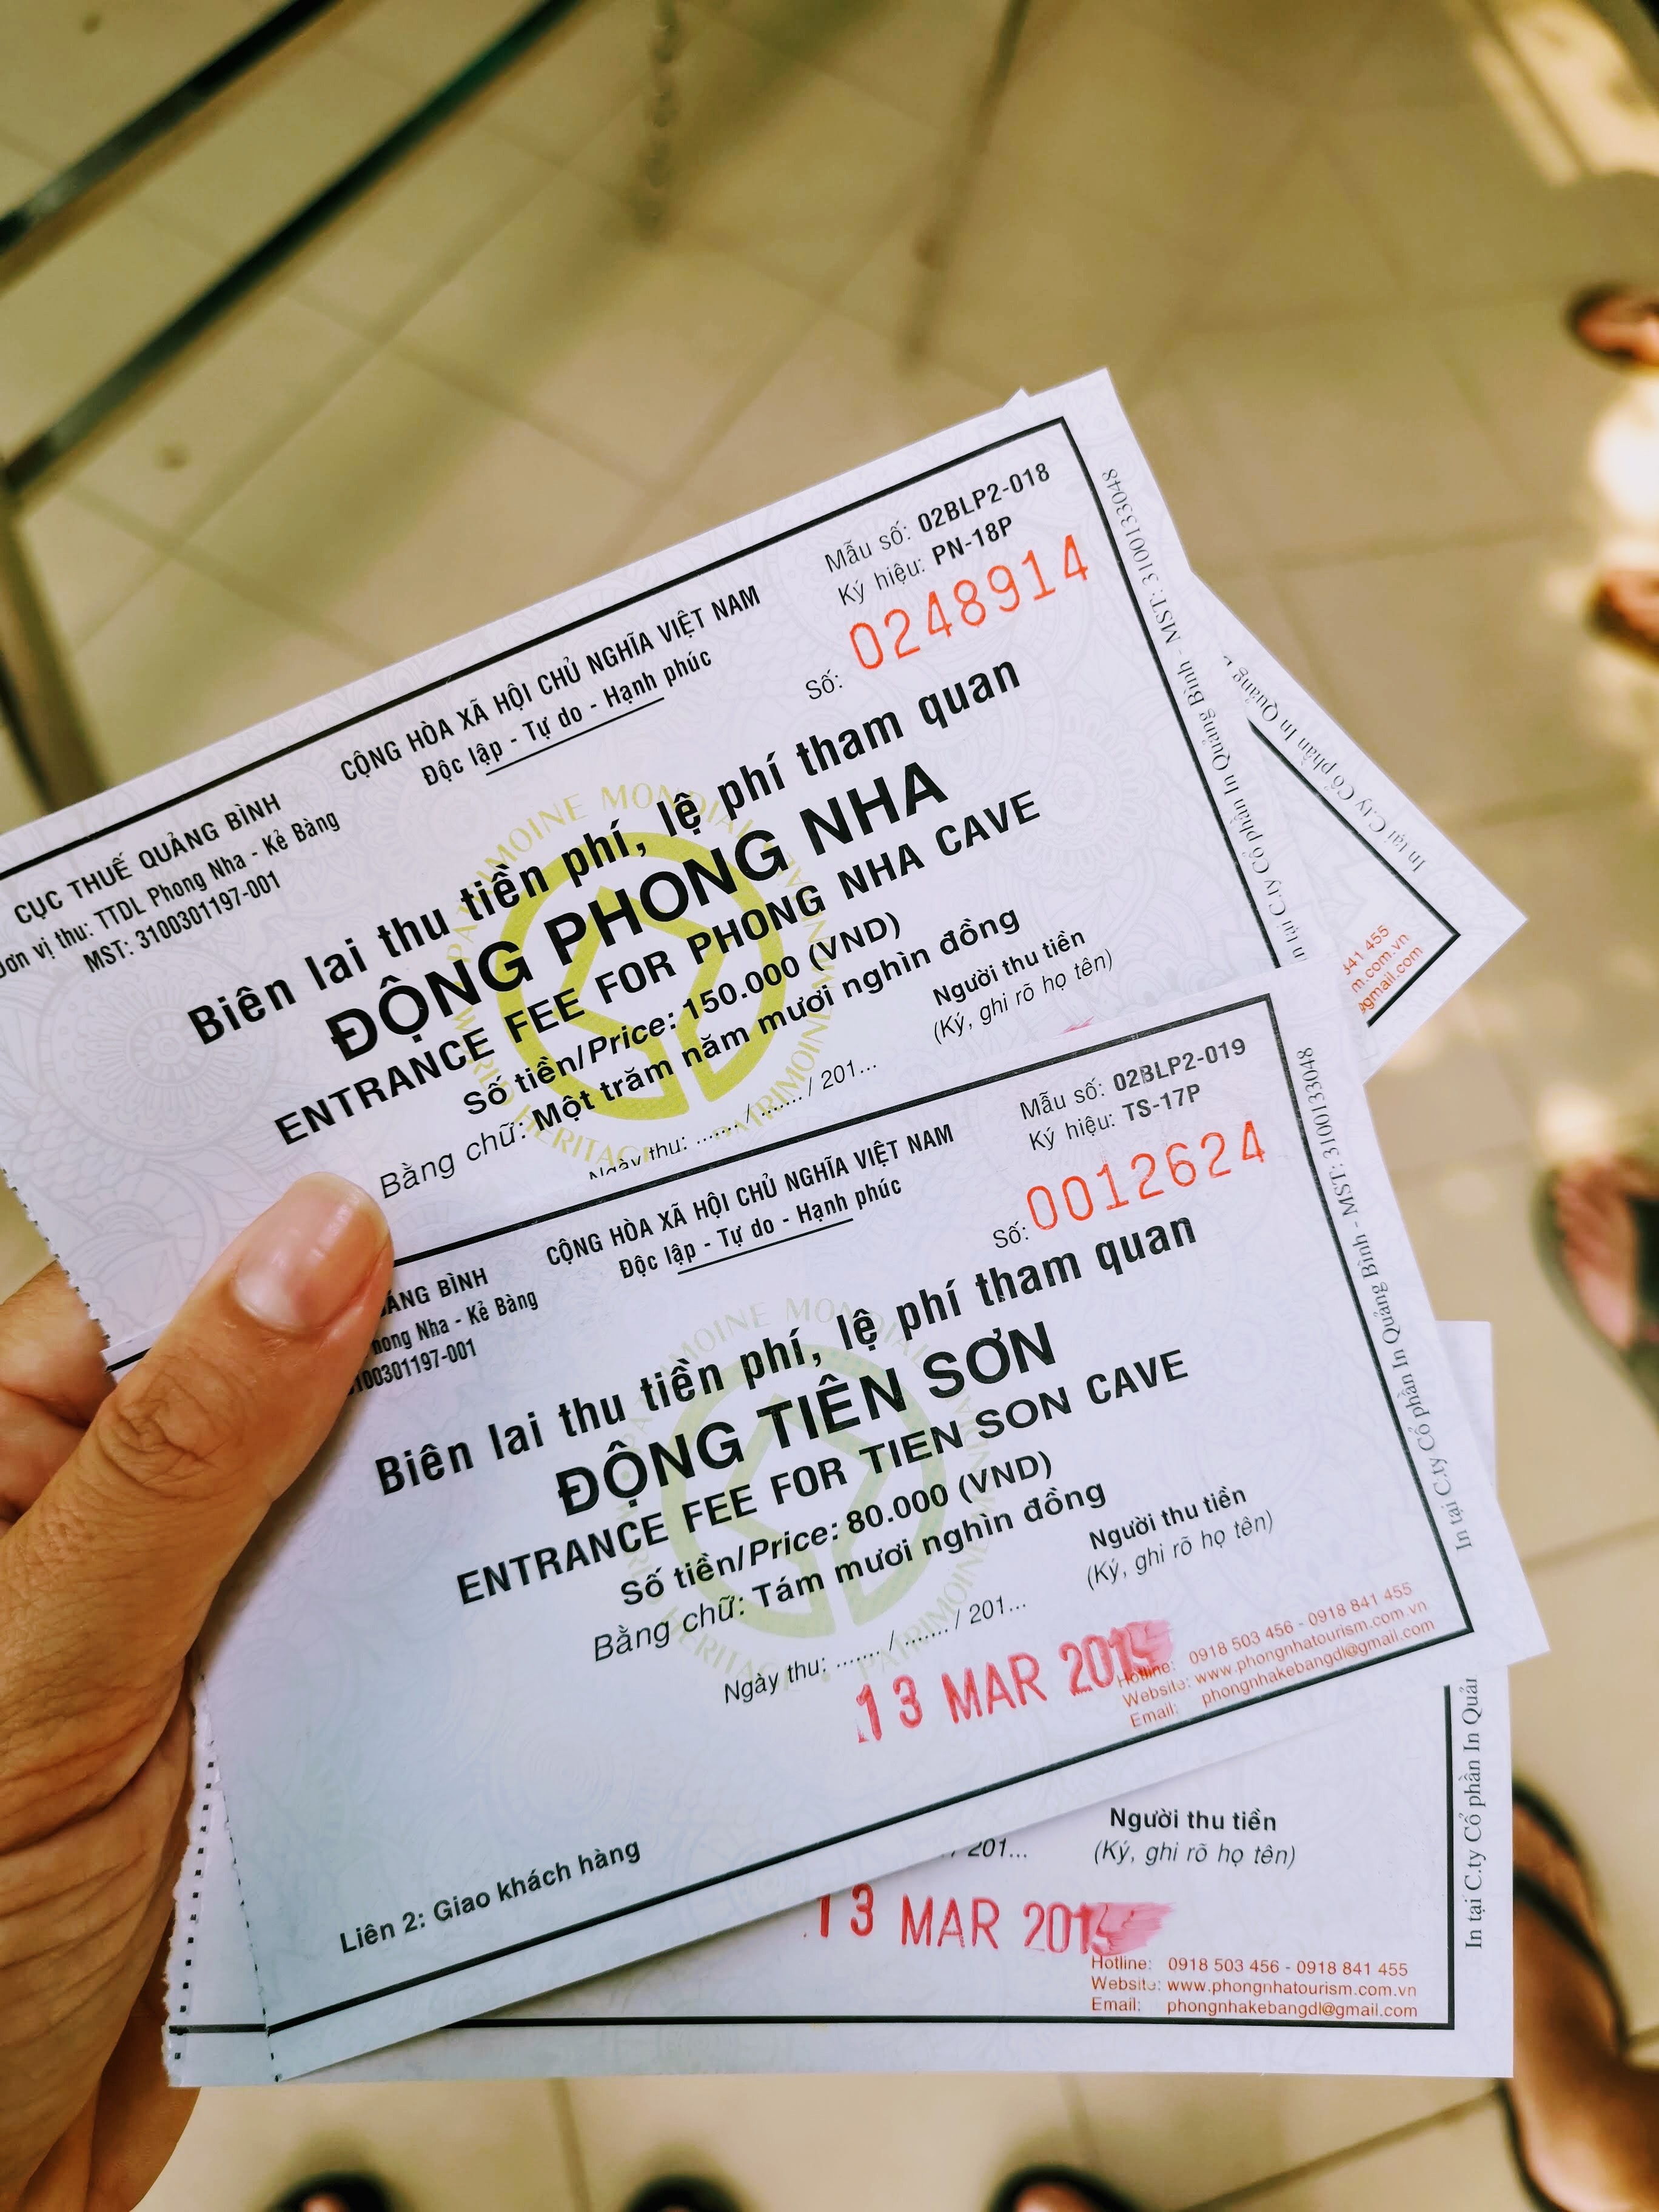 CỤC THUẾ QUẢNG BÌNH
Đơn vị thu: TTDL Phong Nha - Kẻ Bàng
MST: 3100301197-001
CỘNG HÒA XÃ HỘI CHỦ NGHĨA VIỆT NAM
Độc lập - Tự do - Hạnh phúc
Mẫu số: 02BLP2-018
Ký hiệu: PN-18P
Số: 0248914
Biên lai thu tiền phí, lệ phí tham quan
ĐỘNG PHONG NHA
ENTRANCE FEE FOR PHONG NHA CAVE
Số tiền/Price: 150.000 (VND)
Bằng chữ: Một trăm năm mươi nghìn đồng
Ngày thu: ....... / ....... / 201...
Người thu tiền
(Ký, ghi rõ họ tên)
PATRIMOINE MONDIAL
HERITAGE PATRIMOINE
In tại C.ty Cổ phần In Quảng Bình - MST: 3100133048
In tại C.ty Cổ phần In Quảng
In tại C.ty Cổ phần In Quảng
841 455
m.com.vn
@gmail.com
ẢNG BÌNH
hong Nha - Kẻ Bàng
100301197-001
CỘNG HÒA XÃ HỘI CHỦ NGHĨA VIỆT NAM
Độc lập - Tự do - Hạnh phúc
Mẫu số: 02BLP2-019
Ký hiệu: TS-17P
Số: 0012624
Biên lai thu tiền phí, lệ phí tham quan
ĐỘNG TIÊN SƠN
ENTRANCE FEE FOR TIEN SON CAVE
Số tiền/Price: 80.000 (VND)
Bằng chữ: Tám mươi nghìn đồng
Ngày thu: ....... / ....... / 201...
Người thu tiền
(Ký, ghi rõ họ tên)
PATRIMOINE MONDIAL
HERITAGE PATRIMOINE
13 MAR 2019
Hotline: 0918 503 456 - 0918 841 455
Website: www.phongnhatourism.com.vn
Email: phongnhakebangdl@gmail.com
Liên 2: Giao khách hàng
In tại C.ty Cổ phần In Quảng Bình - MST: 3100133048
201...
Người thu tiền
(Ký, ghi rõ họ tên)
13 MAR 2019
Hotline: 0918 503 456 - 0918 841 455
Website: www.phongnhatourism.com.vn
Email: phongnhakebangdl@gmail.com
In tại C.ty Cổ phần In Quản